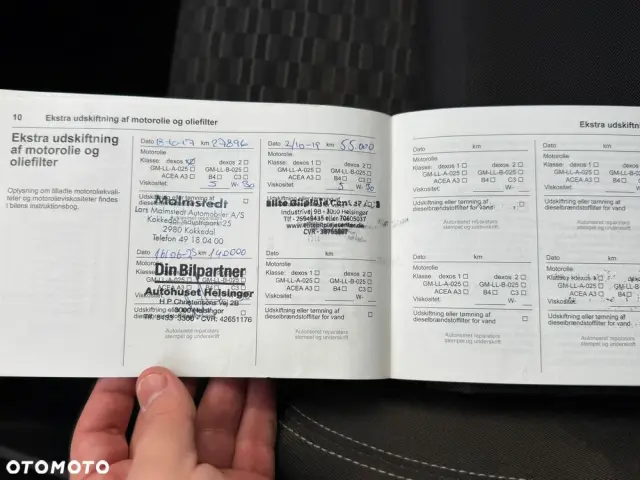 10 Ekstra udskiftning af motorolie og oliefilter
Ekstra udskiftning
af motorolie og
oliefilter
Oplysning om tilladte motoroliekvali-
teter og motorolieviskositeter findes
i bilens instruktionsbog.
Dato 18-10-17 km 27896
Motorolie
Klasse: dexos 1 dexos 2
GM-LL-A-025 GM-LL-B-025
ACEA A3 B4 C3
Viskositet: 5 W- 30
Udskiftning eller tømning af
Malmstedt
Lars Malmstedt Automobiler A/S
Kokkedal Industripark 25
2980 Kokkedal
Telefon 49 18 04 00
Dato km 140000
Din Bilpartner
Autohuset Helsingør
H.P. Christensens Vej 2B
3000 Helsingør
CVR: 42651176
Autoriseret reparatørs
stempel og underskrift
Dato 2/10-19 km 55.000
Motorolie
Klasse: dexos 1 dexos 2
GM-LL-A-025 GM-LL-B-025
ACEA A3 B4 C3
Viskositet: 5 W- 30
Industrivej 9B - 3000 Helsingør
Dato km
Motorolie
Klasse: dexos 1 dexos 2
GM-LL-A-025 GM-LL-B-025
ACEA A3 B4 C3
Viskositet: W-
Udskiftning eller tømning af
dieselbrændstoffilter for vand
Autoriseret reparatørs
stempel og underskrift
Ekstra udskiftnin
Dato km
Motorolie
Klasse: dexos 1 dexos 2
GM-LL-A-025 GM-LL-B-025
ACEA A3 B4 C3
Viskositet: W-
Udskiftning eller tømning af
dieselbrændstoffilter for vand
Autoriseret reparatørs
stempel og underskrift
Dato km
Motorolie
Klasse: dexos 1 dexos 2
GM-LL-A-025 GM-LL-B-025
ACEA A3 B4 C3
Viskositet: W-
Udskiftning eller tømning af
dieselbrændstoffilter for vand
Autoriseret reparatørs
stempel og underskrift
Dato
Motorolie
Klasse: dexos 1
GM-LL-A-025
ACEA A3
Viskositet:
Udskiftning eller tømning
dieselbrændstoffilter for
Dato
Motorolie
Klasse: dexos 1
GM-LL-A-025
ACEA A3
Viskositet:
Udskiftning eller tømning
dieselbrændstoffilter for
OTOMOTO